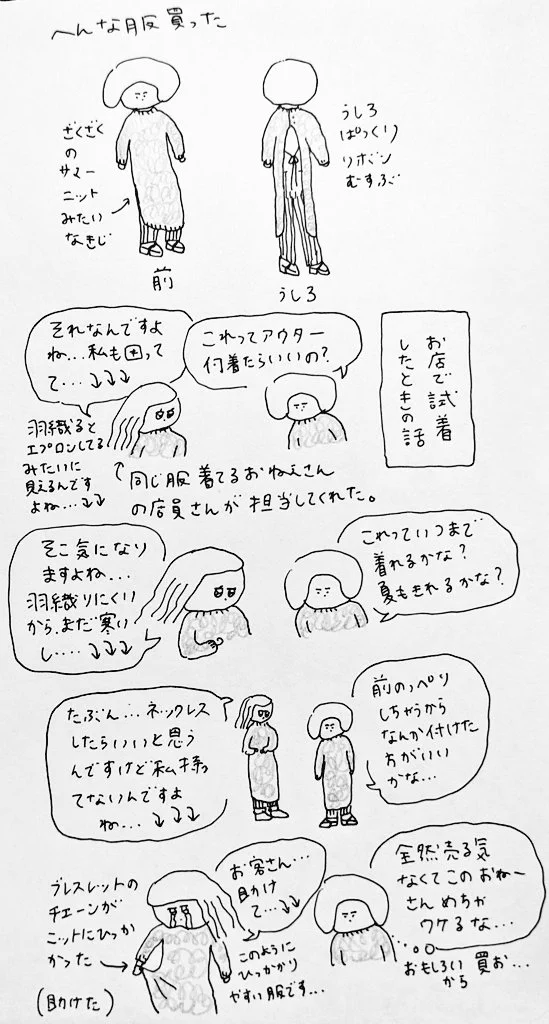 へんな服買った
ざくざく
の
サマー
ニット
みたい
なきじ
前
うしろ
ぱっくり
リボン
むすぶ
うしろ
お店で試着
したときの話
これってアウター
何着たらいいの?
それなんですよ
ね...私も困って
て...↓↓↓
羽織ると
エプロンしてる
みたいに
見えるんです
よね...↓↓
↑同じ服着てるおねえさん
の店員さんが担当してくれた。
これっていつまで
着れるかな?
夏もきれるかな?
そこ気になり
ますよね...
羽織りにくい
から、まだ寒い
し....↓↓↓
前のっぺり
しちゃうから
なんか付けた
方がいい
かな...
たぶん...ネックレス
したらいいと思う
んですけど私持っ
てないんですよ
ね...↓↓↓
全然売る気
なくてこのおねー
さんめちゃ
ウケるな...
おもしろい
から
買お...
お客さん...
助け
て...↓↓
このように
ひっかかり
やすい服です...
ブレスレットの
チェーンが
ニットにひっ
かかった
(助けた)